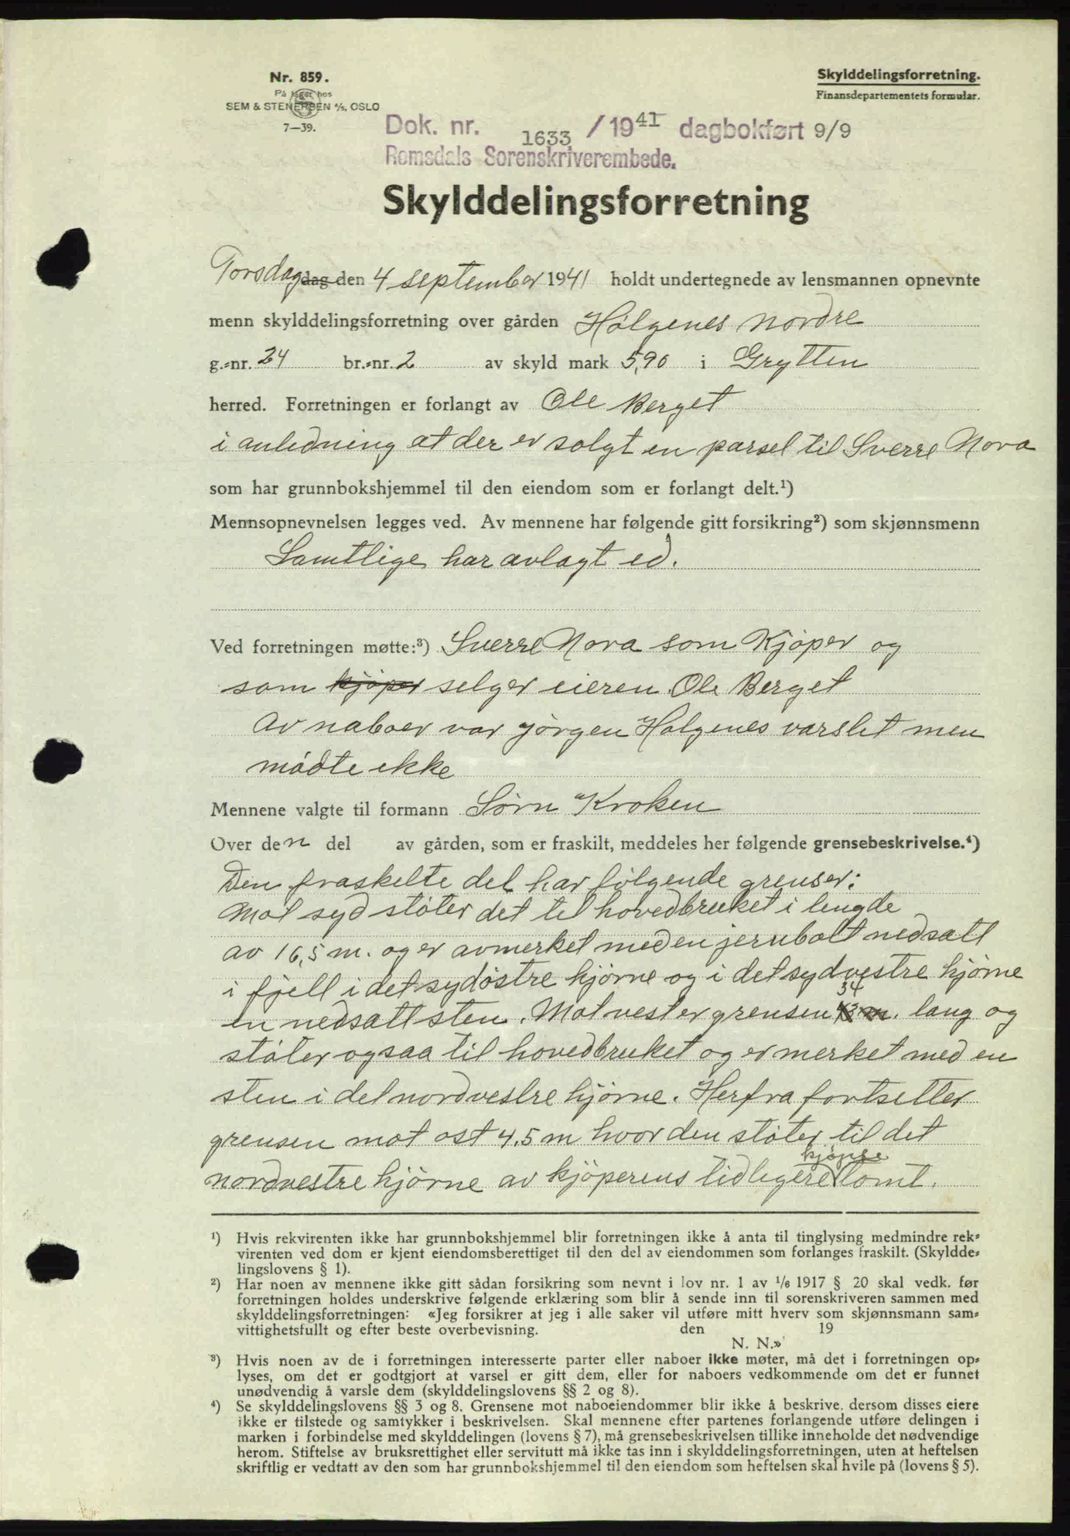 Nr. 859.
På lager hos
SEM & STENERSEN A/S. OSLO
7—39.
Skylddelingsforretning.
Finansdepartementets formular.
Dok. nr. 1633 / 1941 dagbokført 9/9
Romsdals Sorenskriverembede.
Skylddelingsforretning
Torsdag dag den 4 september 1941 holdt undertegnede av lensmannen opnevnte
menn skylddelingsforretning over gården Holgenes nordre
g.-nr. 24 br.-nr. 2 av skyld mark 5,90 i Grytten
herred. Forretningen er forlangt av Ole Berget
i anledning at der er solgt en parsel til Sverre Nora
som har grunnbokshjemmel til den eiendom som er forlangt delt.¹)
Mennsopnevnelsen legges ved. Av mennene har følgende gitt forsikring²) som skjønnsmenn
Samtlige har avlagt ed.
Ved forretningen møtte:³) Sverre Nora som Kjöper og
som kjöper selger eieren Ole Berget
Av naboer var Jörgen Holgenes varslet men
mödte ikke
Mennene valgte til formann Sörn Kroken
Over den del av gården, som er fraskilt, meddeles her følgende grensebeskrivelse.⁴)
Den fraskelte del har fölgende grenser:
Mot syd stöter det til hovedbruket i lengde
av 16,5 m. og er avmerket med en jernbolt nedsatt
i fjell i det sydöstre hjörne og i det sydvestre hjörne
en nedsatt sten. Mot vest er grensen 34 m. lang og
stöter ogsaa til hovedbruket og er merket med en
sten i det nordvestre hjörne. Herfra fortsetter
grensen mot ost 4,5 m hvor den stöter til det
kjöpte
nordvestre hjörne av kjöperens tidligere tomt.
¹) Hvis rekvirenten ikke har grunnbokshjemmel blir forretningen ikke å anta til tinglysing medmindre rek-
virenten ved dom er kjent eiendomsberettiget til den del av eiendommen som forlanges fraskilt. (Skyldde-
lingslovens § 1).
²) Har noen av mennene ikke gitt sådan forsikring som nevnt i lov nr. 1 av 1/6 1917 § 20 skal vedk. før
forretningen holdes underskrive følgende erklæring som blir å sende inn til sorenskriveren sammen med
skylddelingsforretningen: «Jeg forsikrer at jeg i alle saker vil utføre mitt hverv som skjønnsmann sam-
vittighetsfullt og efter beste overbevisning. den 19
N. N.»
³) Hvis noen av de i forretningen interesserte parter eller naboer ikke møter, må det i forretningen op-
lyses, om det er godtgjort at varsel er gitt dem, eller for naboers vedkommende om det er funnet
unødvendig å varsle dem (skylddelingslovens §§ 2 og 8).
⁴) Se skylddelingslovens §§ 3 og 8. Grensene mot naboeiendommer blir ikke å beskrive, dersom disses eiere
ikke er tilstede og samtykker i beskrivelsen. Skal mennene efter partenes forlangende utføre delingen i
marken i forbindelse med skylddelingen (lovens § 7), må grensebeskrivelsen tillike inneholde det nødvendige
herom. Stiftelse av bruksrettighet eller servitutt må ikke tas inn i skylddelingsforretningen, uten at heftelsen
skriftlig er vedtatt av den som har grunnbokshjemmel til den eiendom som heftelsen skal hvile på (lovens § 5).